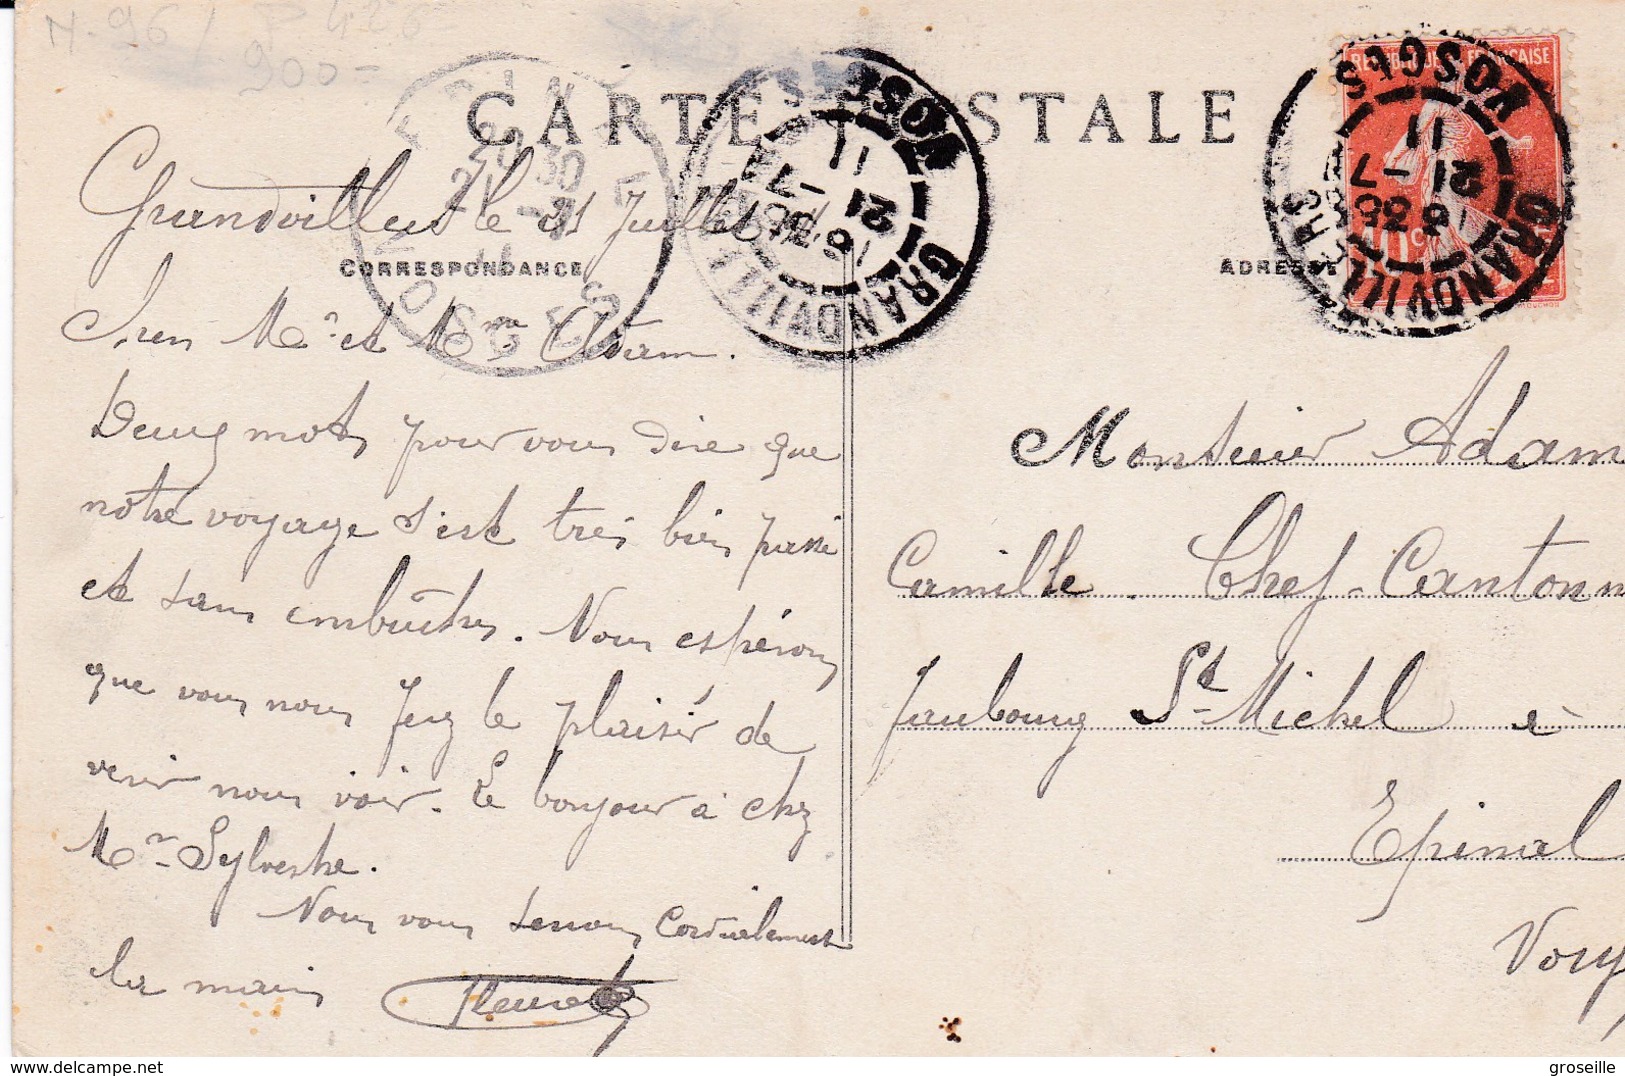 N. 96 / P 426
900-
CARTE POSTALE
CORRESPONDANCE
ADRESSE
REPUBLIQUE FRANÇAISE
GRANDVILLERS
VOSGES
16 35
21 - 7
11
GRANDVILLERS
VOSGES
21 - 7
11
EPINAL
VOSGES
Grandvillers le 21 Juillet
Bien Mr et Mme Adam.
Deux mots pour vous dire que
notre voyage s'est très bien passé
et sans embûches. Nous espérons
que vous nous ferez le plaisir de
venir nous voir. Le bonjour à chez
Mr Sylvestre.
Nous vous serrons Cordialement
la main
Monsieur Adam
Camille Chef-Cantonn
faubourg St-Michel à
Epinal
Vosg
groseille